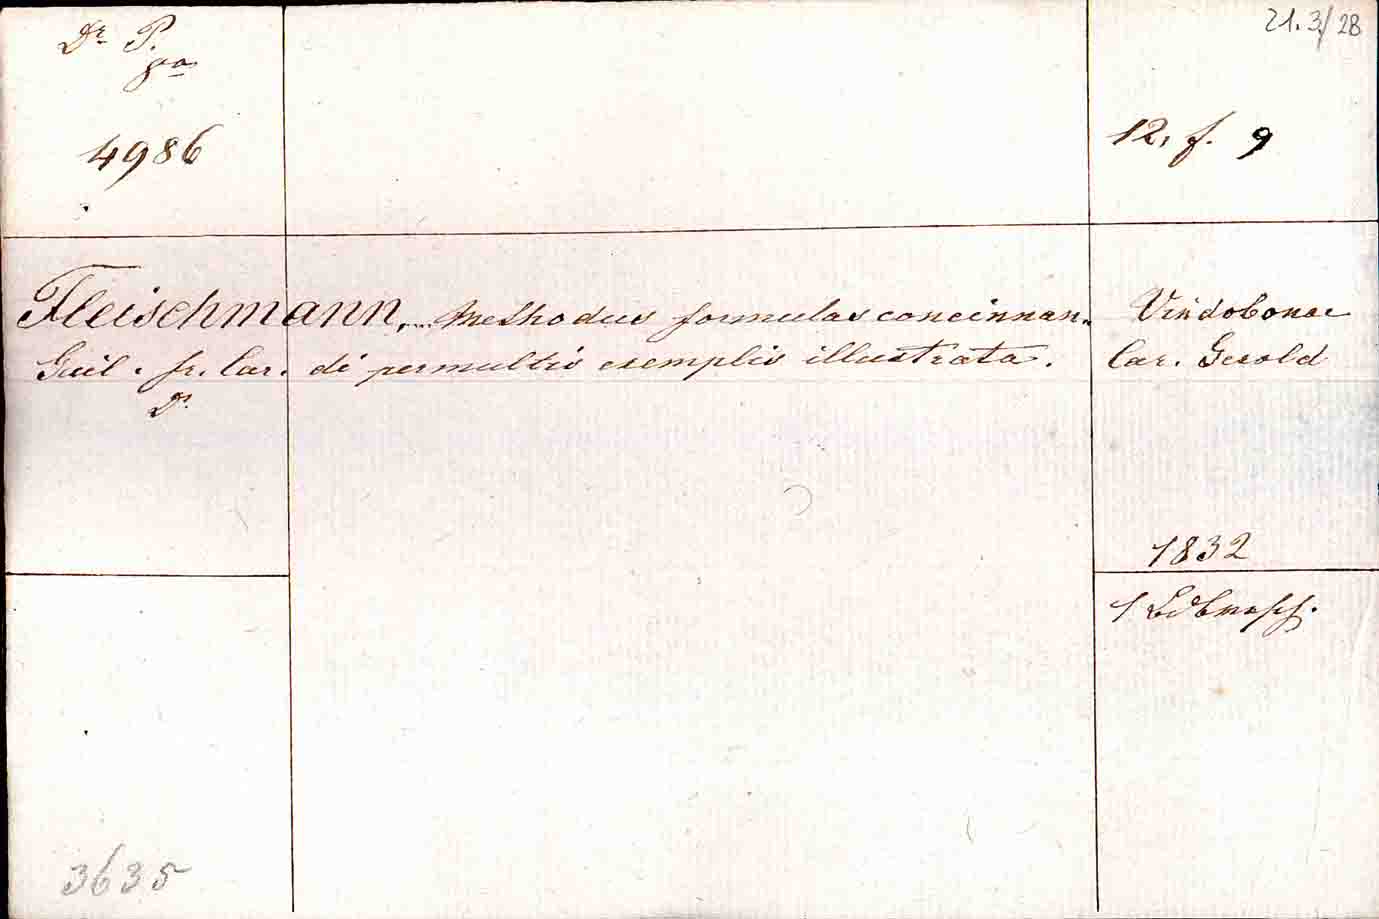 Dr P.
8va
4986
21.3./28
12, f. 9
Fleischmann,
Guil. fr. Car.
Dr.
Methodus formulas concinnan-
di permultis exemplis illustrata.
Vindobonae
Car. Gerold
1832
1
3635